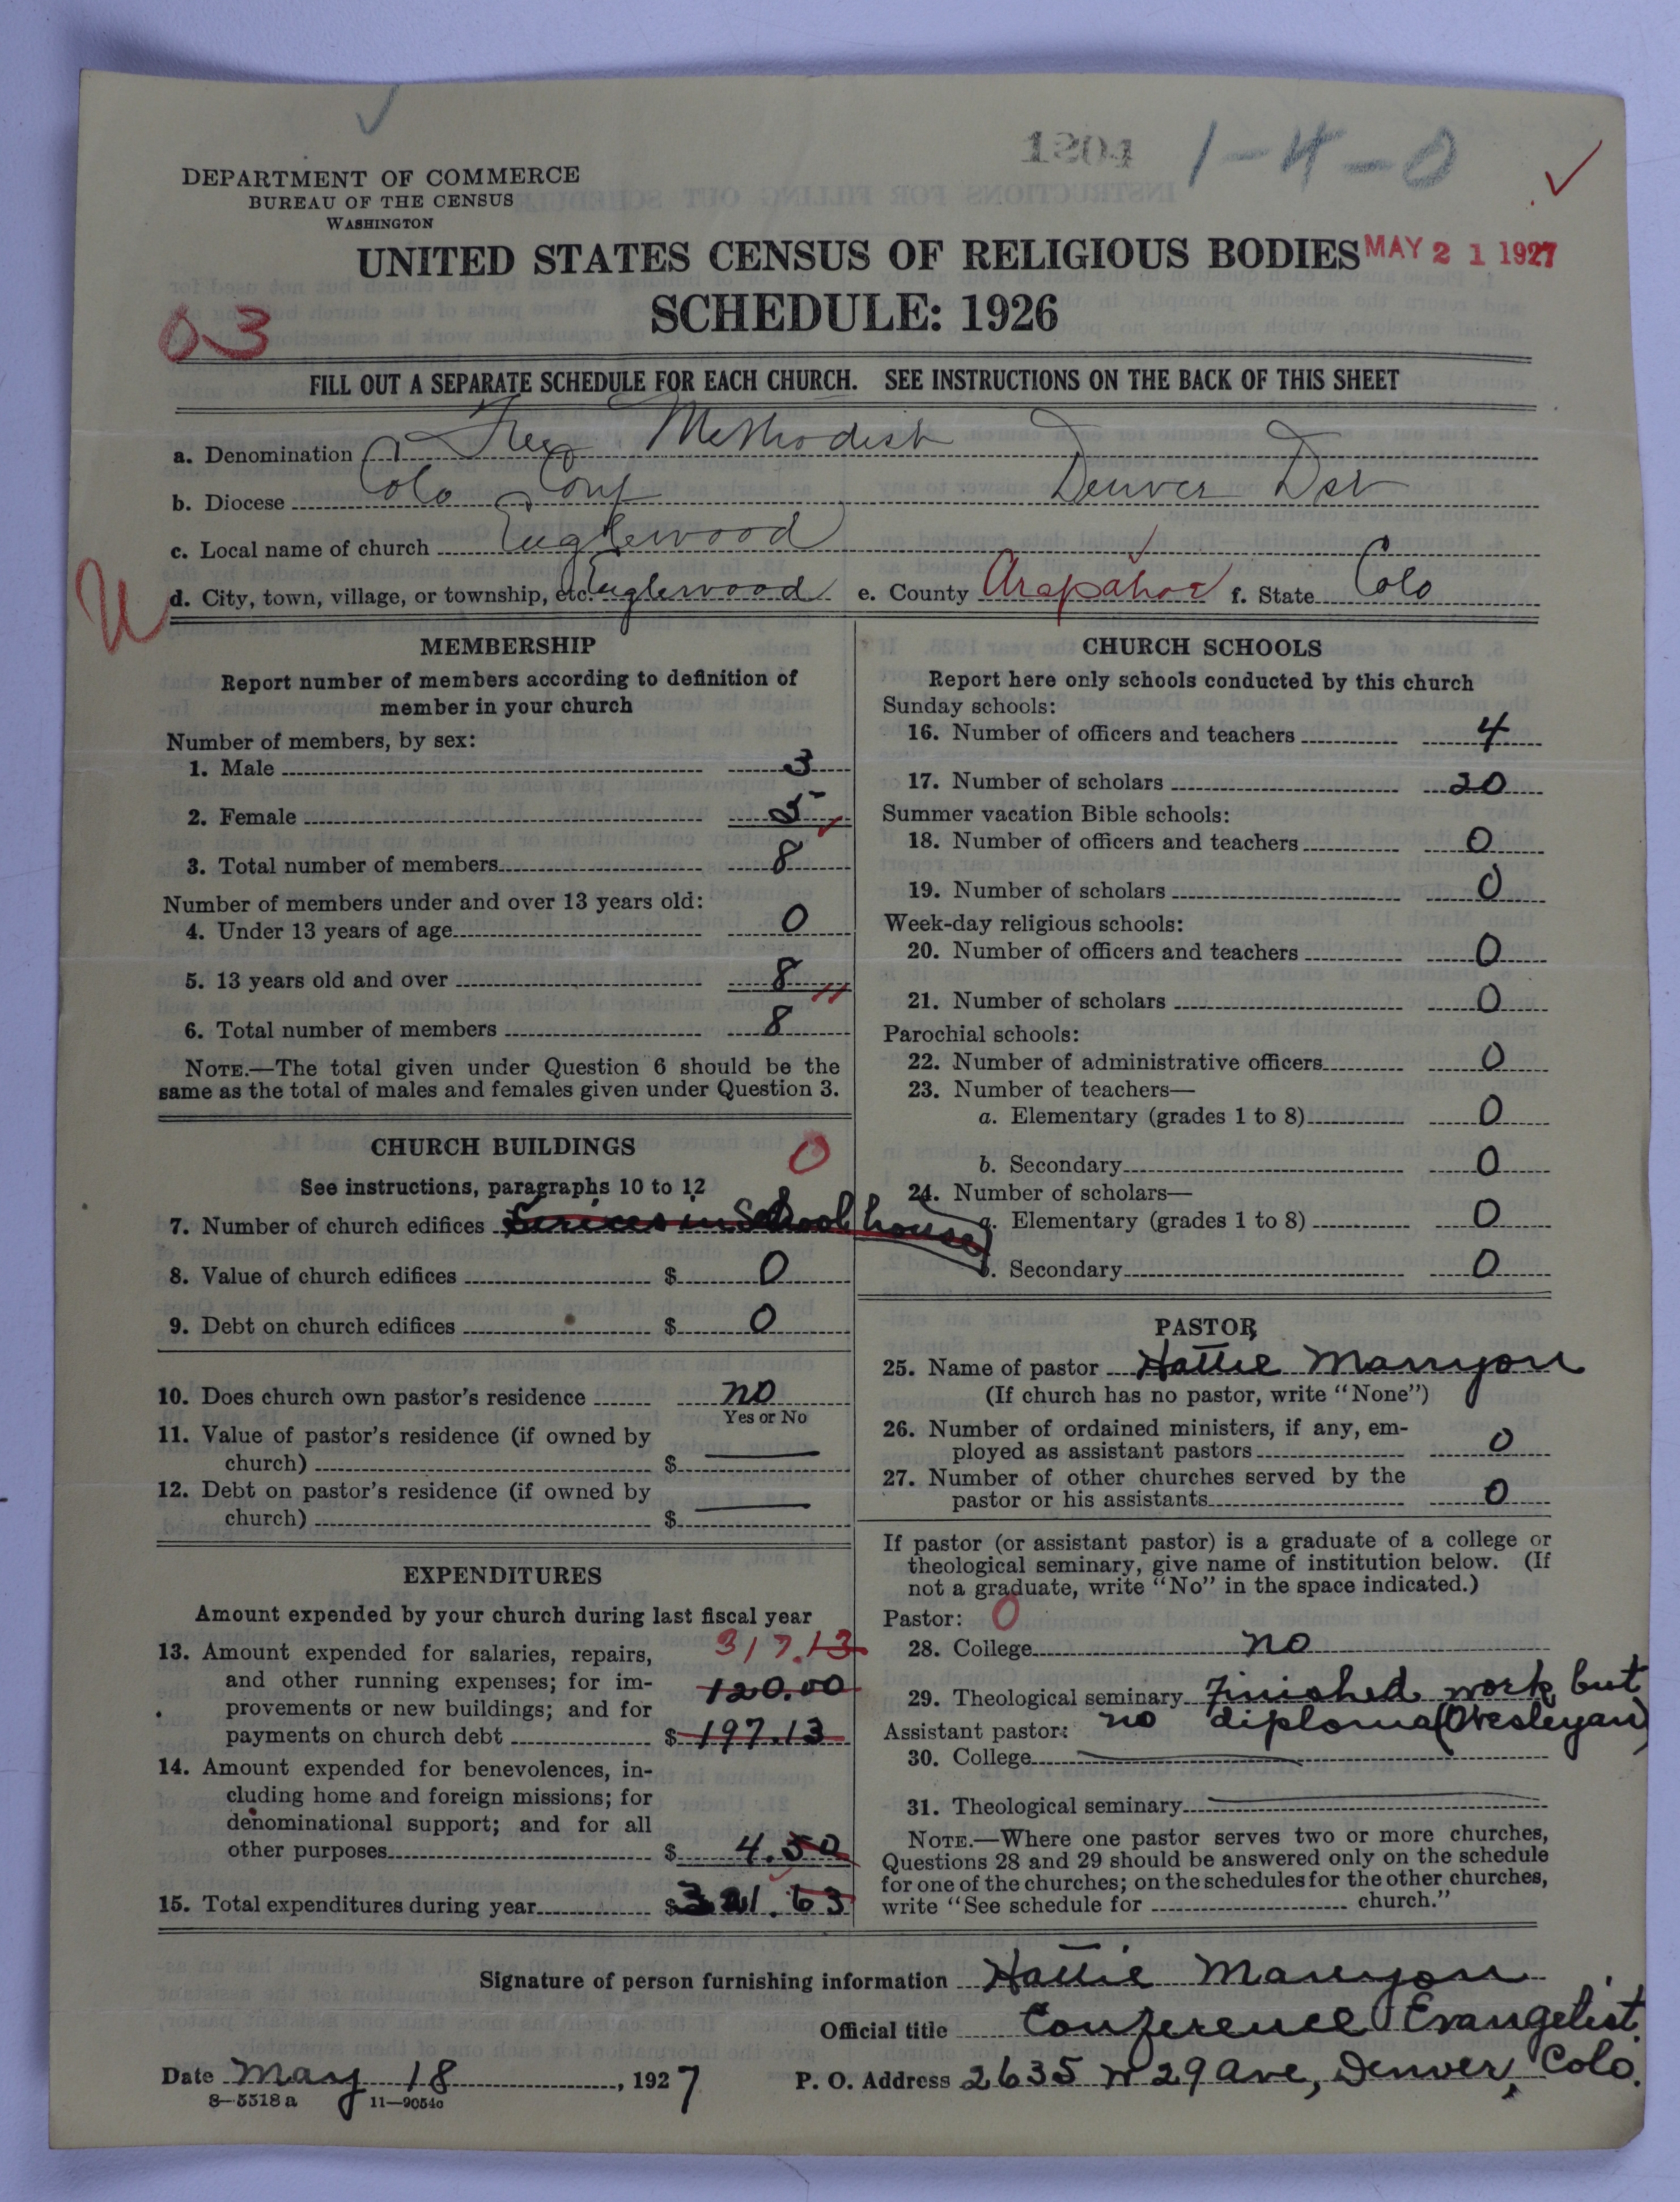 1204 1-4-0
DEPARTMENT OF COMMERCE
BUREAU OF THE CENSUS
WASHINGTON
UNITED STATES CENSUS OF RELIGIOUS BODIES MAY 21 1927
SCHEDULE: 1926
03
FILL OUT A SEPARATE SCHEDULE FOR EACH CHURCH. SEE INSTRUCTIONS ON THE BACK OF THIS SHEET
a. Denomination Free Methodist
b. Diocese Colo Conf Denver Dst
c. Local name of church Englewood
d. City, town, village, or township, etc. Englewood e. County Arapahoe f. State Colo
MEMBERSHIP
Report number of members according to definition of
member in your church
Number of members, by sex:
1. Male 3
2. Female 5
3. Total number of members 8
Number of members under and over 13 years old:
4. Under 13 years of age 0
5. 13 years old and over 8
6. Total number of members 8
NOTE.—The total given under Question 6 should be the
same as the total of males and females given under Question 3.
CHURCH BUILDINGS 0
See instructions, paragraphs 10 to 12
7. Number of church edifices Services in School house
8. Value of church edifices $ 0
9. Debt on church edifices $ 0
10. Does church own pastor's residence no
Yes or No
11. Value of pastor's residence (if owned by
church) $
12. Debt on pastor's residence (if owned by
church) $
EXPENDITURES
Amount expended by your church during last fiscal year
13. Amount expended for salaries, repairs, 317.13
and other running expenses; for im- 120.00
provements or new buildings; and for
payments on church debt $ 197.13
14. Amount expended for benevolences, in-
cluding home and foreign missions; for
denominational support; and for all
other purposes $ 4.50
15. Total expenditures during year $ 321.63
CHURCH SCHOOLS
Report here only schools conducted by this church
Sunday schools:
16. Number of officers and teachers 4
17. Number of scholars 20
Summer vacation Bible schools:
18. Number of officers and teachers 0
19. Number of scholars 0
Week-day religious schools:
20. Number of officers and teachers 0
21. Number of scholars 0
Parochial schools:
22. Number of administrative officers 0
23. Number of teachers—
a. Elementary (grades 1 to 8) 0
b. Secondary 0
24. Number of scholars—
a. Elementary (grades 1 to 8) 0
b. Secondary 0
PASTOR
25. Name of pastor Hattie Manyon
(If church has no pastor, write "None")
26. Number of ordained ministers, if any, em-
ployed as assistant pastors 0
27. Number of other churches served by the
pastor or his assistants 0
If pastor (or assistant pastor) is a graduate of a college or
theological seminary, give name of institution below. (If
not a graduate, write "No" in the space indicated.)
Pastor: 0
28. College no
29. Theological seminary Finished work but
Assistant pastor: no diploma (Wesleyan)
30. College
31. Theological seminary
NOTE.—Where one pastor serves two or more churches,
Questions 28 and 29 should be answered only on the schedule
for one of the churches; on the schedules for the other churches,
write "See schedule for church."
Signature of person furnishing information Hattie Manyon
Official title Conference Evangelist.
Date May 18, 1927 P. O. Address 2635 W 29 Ave, Denver, Colo.
8-5518 a 11-9054c